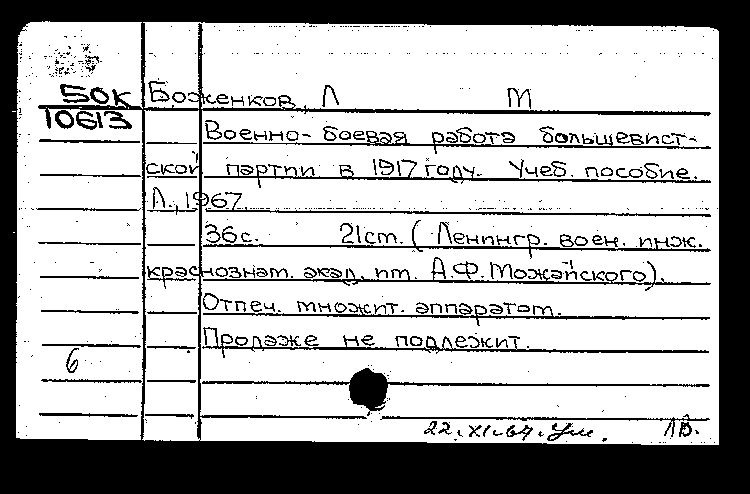 50К Боженков, Л М
10613
Военно-боевая работа большевист-
ской партии в 1917 году. Учеб. пособие.
Л., 1967.
36с. 21см. (Ленингр. воен. инж.
краснознам. акад. им. А.Ф.Можайского).
Отпеч. множит. аппаратом.
Продаже не подлежит.
6
22.XI.67. ЛВ.